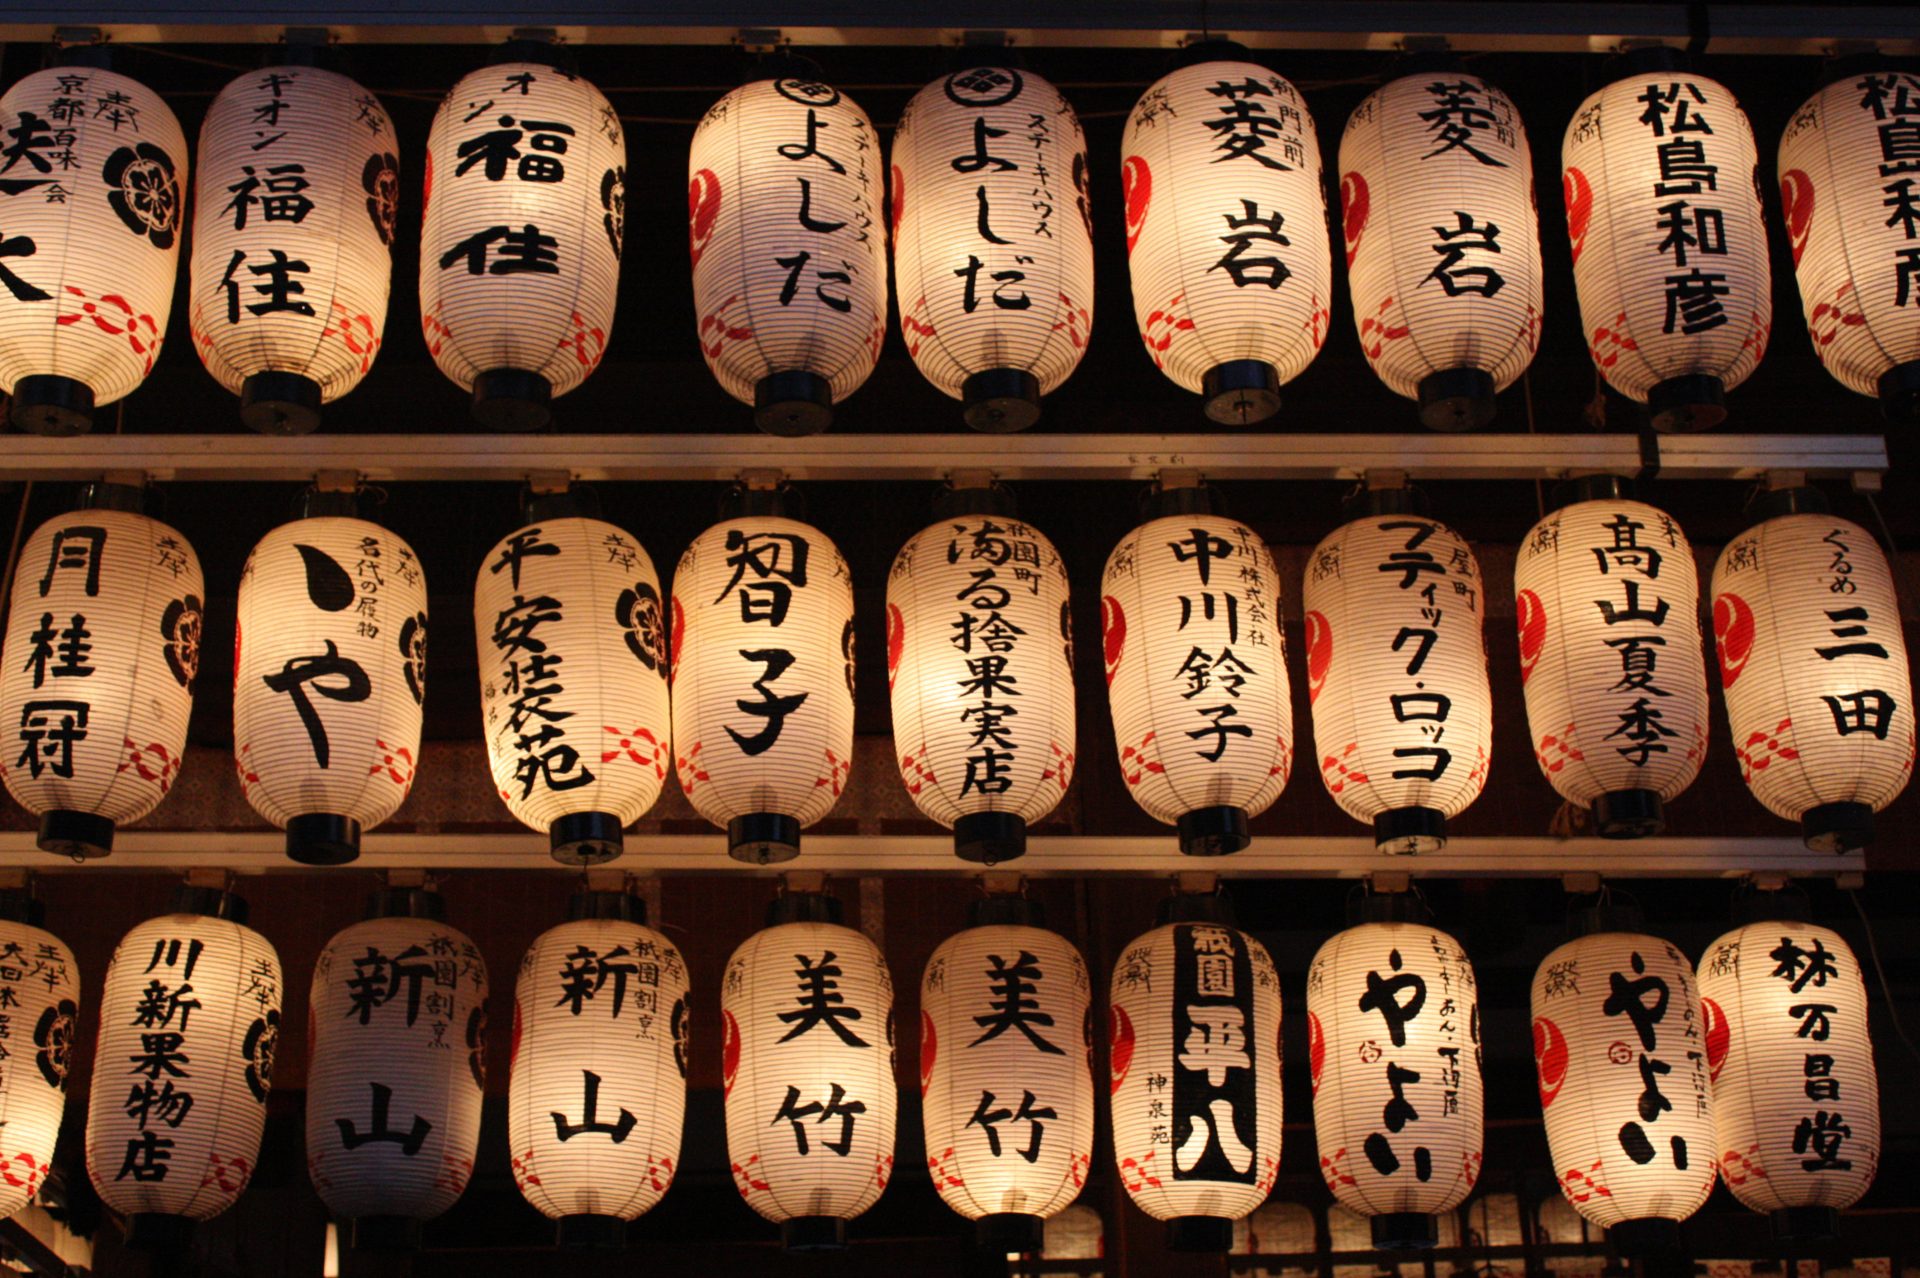 奉
京都百味会
奉
ギオン
福住
奉
福住
ステーキハウス
よしだ
ステーキハウス
よしだ
菱岩
門前
菱岩
松島和彦
松島和彦
奉
月桂冠
奉
名代の履物
いや
奉
平安装苑
智子
祇園町
満る捨果実店
中川株式会社
中川鈴子
屋町
ブティック・ロッコ
高山夏季
ぐるめ
三田
奉
大日本
奉
川新果物店
奉
祇園割烹
新山
奉
祇園割烹
新山
美竹
美竹
祇園
平八
神泉苑
やよい
やよい
林万昌堂